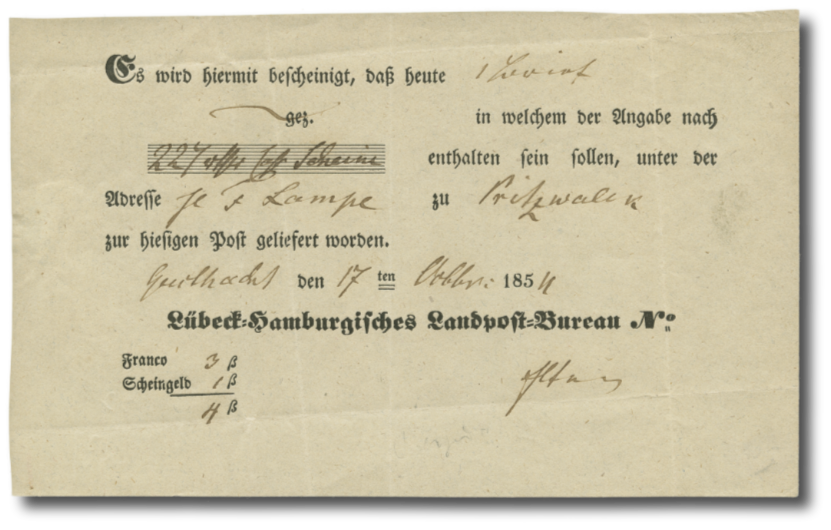 Es wird hiermit bescheinigt, daß heute 1 Brief
gez. in welchem der Angabe nach
227 Scheine enthalten sein sollen, unter der
Adresse F Lampe zu Pritzwalk
zur hiesigen Post geliefert worden.
Geesthacht den 17 ten Octbr: 1854
Lübeck-Hamburgisches Landpost-Bureau No.
Franco 3 ß
Scheingeld 1 ß
4 ß